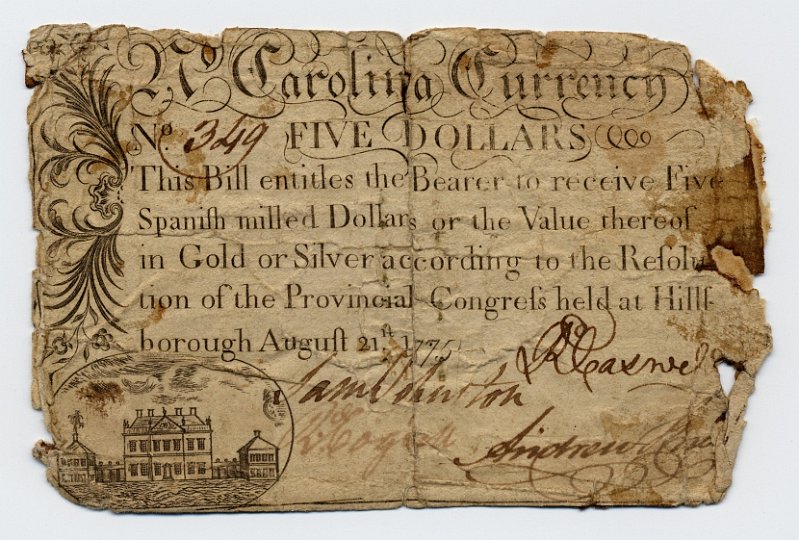 No Carolina Currency
No 349 FIVE DOLLARS
This Bill entitles the Bearer to receive Five
Spaniſh milled Dollars or the Value thereof
in Gold or Silver according to the Reſolu
tion of the Provincial Congreſs held at Hillſ-
borough Auguſt 21ſt 1775
Rd Caswell
Saml Johnston
Andrew